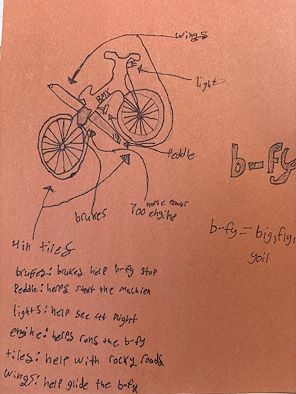 wings
light
BMX
Peddle
b-fy
horse power
700 engine
brukes
b-fy = big, fly,
yoil
4in tiles
brukes: brukes help b-fy stop
Peddle: helps start the machien
lights: help see at night
engine: helps runs the b-fy
tiles: help with rocky roads
wings: help glide the b-fy